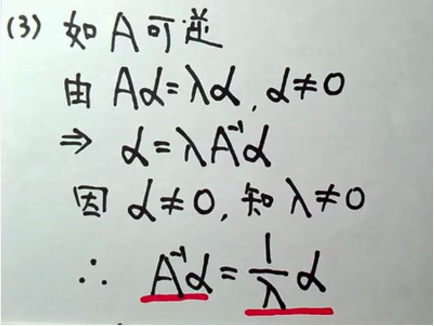 (3) 如 A 可逆
由 Aα=λα, α≠0
⇒ α=λA⁻¹α
因 α≠0, 知 λ≠0
∴ A⁻¹α=1/λ α